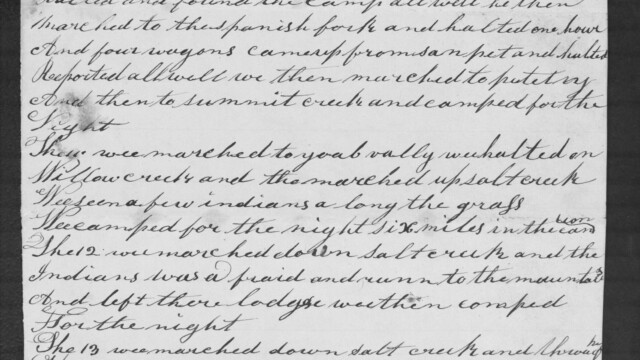 and found the camp all well he then
marched to the spanish fork and halted one hour
And four wagons came up from sanpet and halted
Reported all well we then marched to petetny
And then to summit creek and camped for the
Night
Then wee marched to yoab vally wee halted on
Willow creek and tho marched up salt creek
Wee seen a few indians a long the grass
Wee camped for the night six miles in the
The 12 wee marched down salt creek and the
Indians was a fraid and runn to the mountas
And left there lodge wee then comped
For the night
The 13 wee marched down salt creek and through